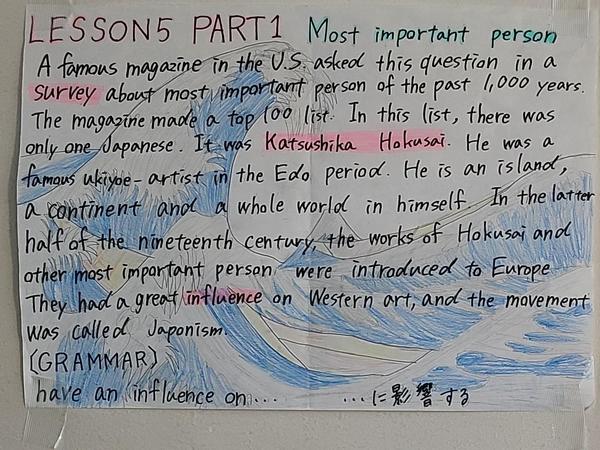 LESSON5 PART1 Most important person
A famous magazine in the U.S. asked this question in a
survey about most important person of the past 1,000 years.
The magazine made a top 100 list. In this list, there was
only one Japanese. It was Katsushika Hokusai. He was a
famous ukiyoe-artist in the Edo period. He is an island,
a continent and a whole world in himself. In the latter
half of the nineteenth century, the works of Hokusai and
other most important person were introduced to Europe
They had a great influence on Western art, and the movement
was called Japonism.
(GRAMMAR)
have an influence on... ...に影響する